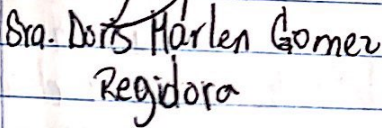 Sra. Doris Marlen Gomez
Regidora